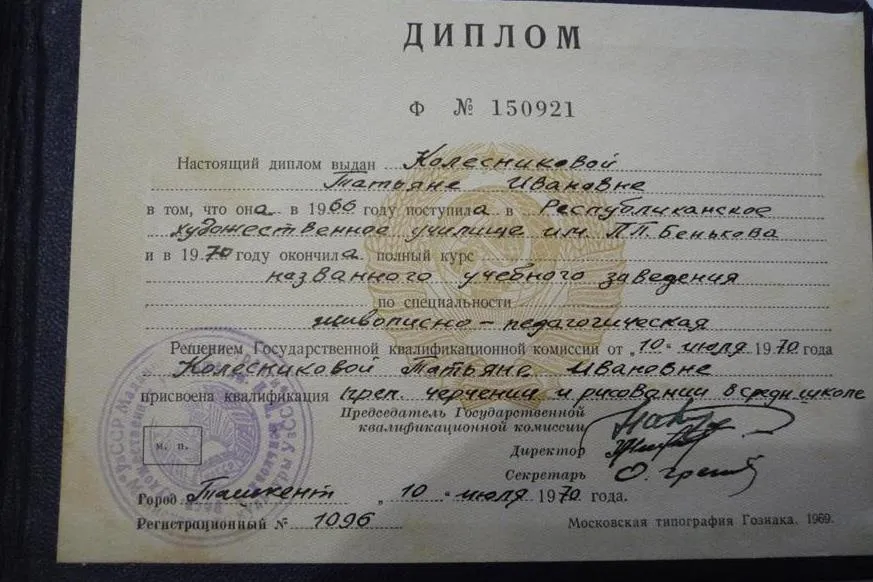 ДИПЛОМ
Ф № 150921
Настоящий диплом выдан Колесниковой
Татьяне Ивановне
в том, что она в 1966 году поступила в Республиканское
художественное училище им. П.П. Бенькова
и в 1970 году окончила полный курс
названного учебного заведения
по специальности
живописно-педагогическая
Решением Государственной квалификационной комиссии от „10" июля 1970 года
Колесниковой Татьяне Ивановне
присвоена квалификация преп. черчения и рисования в средн. школе
Председатель Государственной
квалификационной комиссии
Директор
Секретарь
м. п.
Город Ташкент „10" июля 1970 года.
Регистрационный № 1096
Московская типография Гознака. 1969.